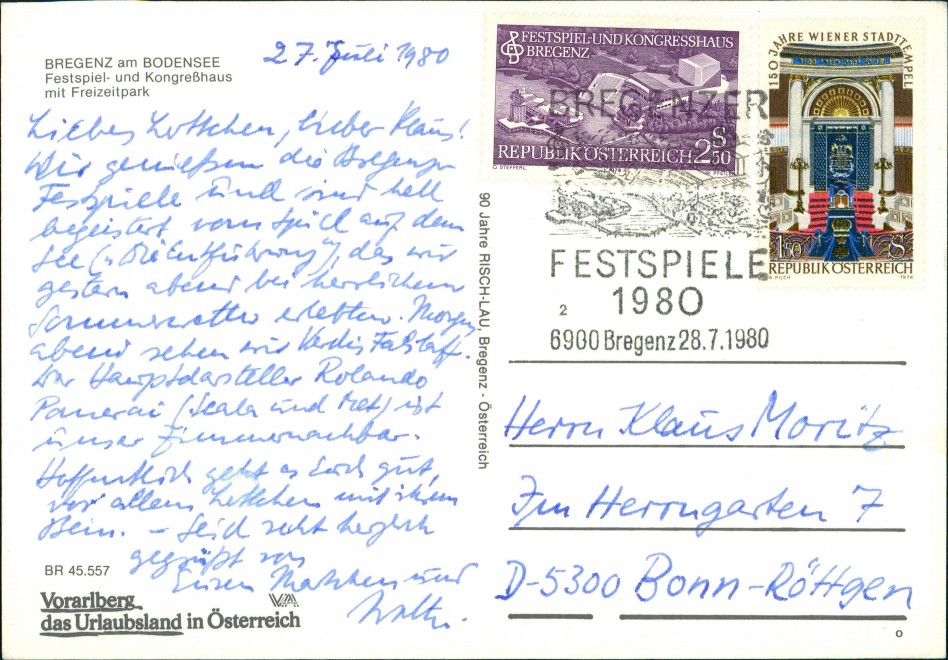 BREGENZ am BODENSEE
Festspiel- und Kongreßhaus
mit Freizeitpark
27. Juli 1980
Liebes Lottchen, lieber Klaus!
Wir genießen die Bregenzer
Festspiele und sind hell
begeistert vom Spiel auf dem
See („Die Entführung“), das wir
gestern abend bei herrlichem
Sommerwetter erlebten. Morgen
abend sehen wir Verdis Falstaff.
Der Hauptdarsteller Rolando
Panerai (Scala und Met) ist
unser Zimmernachbar.
Hoffentlich geht es Euch gut,
vor allem Lottchen mit ihrem
Bein. – Seid sehr herzlich
gegrüßt von
Euren und
BR 45.557
Vorarlberg
das Urlaubsland in Österreich
90 Jahre RISCH-LAU, Bregenz - Österreich
FESTSPIEL- UND KONGRESSHAUS
BREGENZ
REPUBLIK ÖSTERREICH S 250
O. STEFFERL
150 JAHRE WIENER STADTTEMPEL
150 S
REPUBLIK ÖSTERREICH
A. PILCH 1976
BREGENZER
FESTSPIELE
1980
2
6900 Bregenz 28.7.1980
Herrn Klaus Moritz
Im Herrngarten 7
D-5300 Bonn-Röttgen